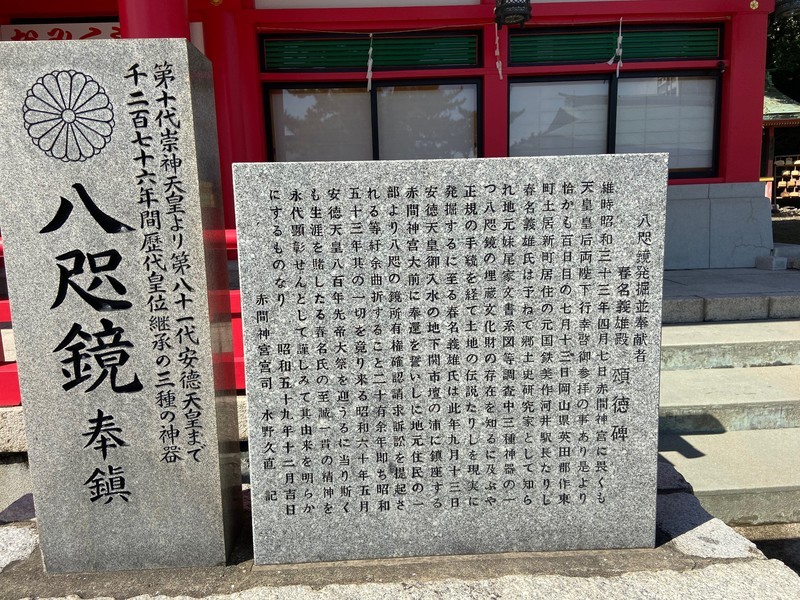 第十代崇神天皇より第八十一代安徳天皇まで
千二百七十六年間歴代皇位継承の三種の神器
八咫鏡 奉鎮
八咫鏡発掘並奉献者
春名義雄殿 頌徳碑
維時昭和三十三年四月七日赤間神宮に畏くも
天皇皇后両陛下行幸啓御参拝の事あり是より
恰かも百日目の七月十三日岡山県英田郡作東
町土居新町居住の元国鉄美作河井駅長たりし
春名義雄氏は予ねて郷土史研究家として知ら
れ地元妹尾家文書系図等調査中三種神器の一
つ八咫鏡の埋蔵文化財の存在を知るに及ぶや
正規の手続を経て土地の伝説たりしを現実に
発掘するに至る春名義雄氏は此年九月十三日
安徳天皇御入水の地下関市壇の浦に鎮座する
赤間神宮大前に奉還を誓いしに地元住民の一
部より八咫の鏡所有権確認請求訴訟を提起さ
れる等紆余曲折すること二十有余年即ち昭和
五十三年其の一切を竟り来る昭和六十年五月
安徳天皇八百年先帝大祭を迎うるに当り斯く
も生涯を賭したる春名氏の至誠一貫の精神を
永代顕彰せんとして謹しみて其由来を明らか
にするものなり 昭和五十九年十二月吉日
赤間神宮宮司 水野久直 記